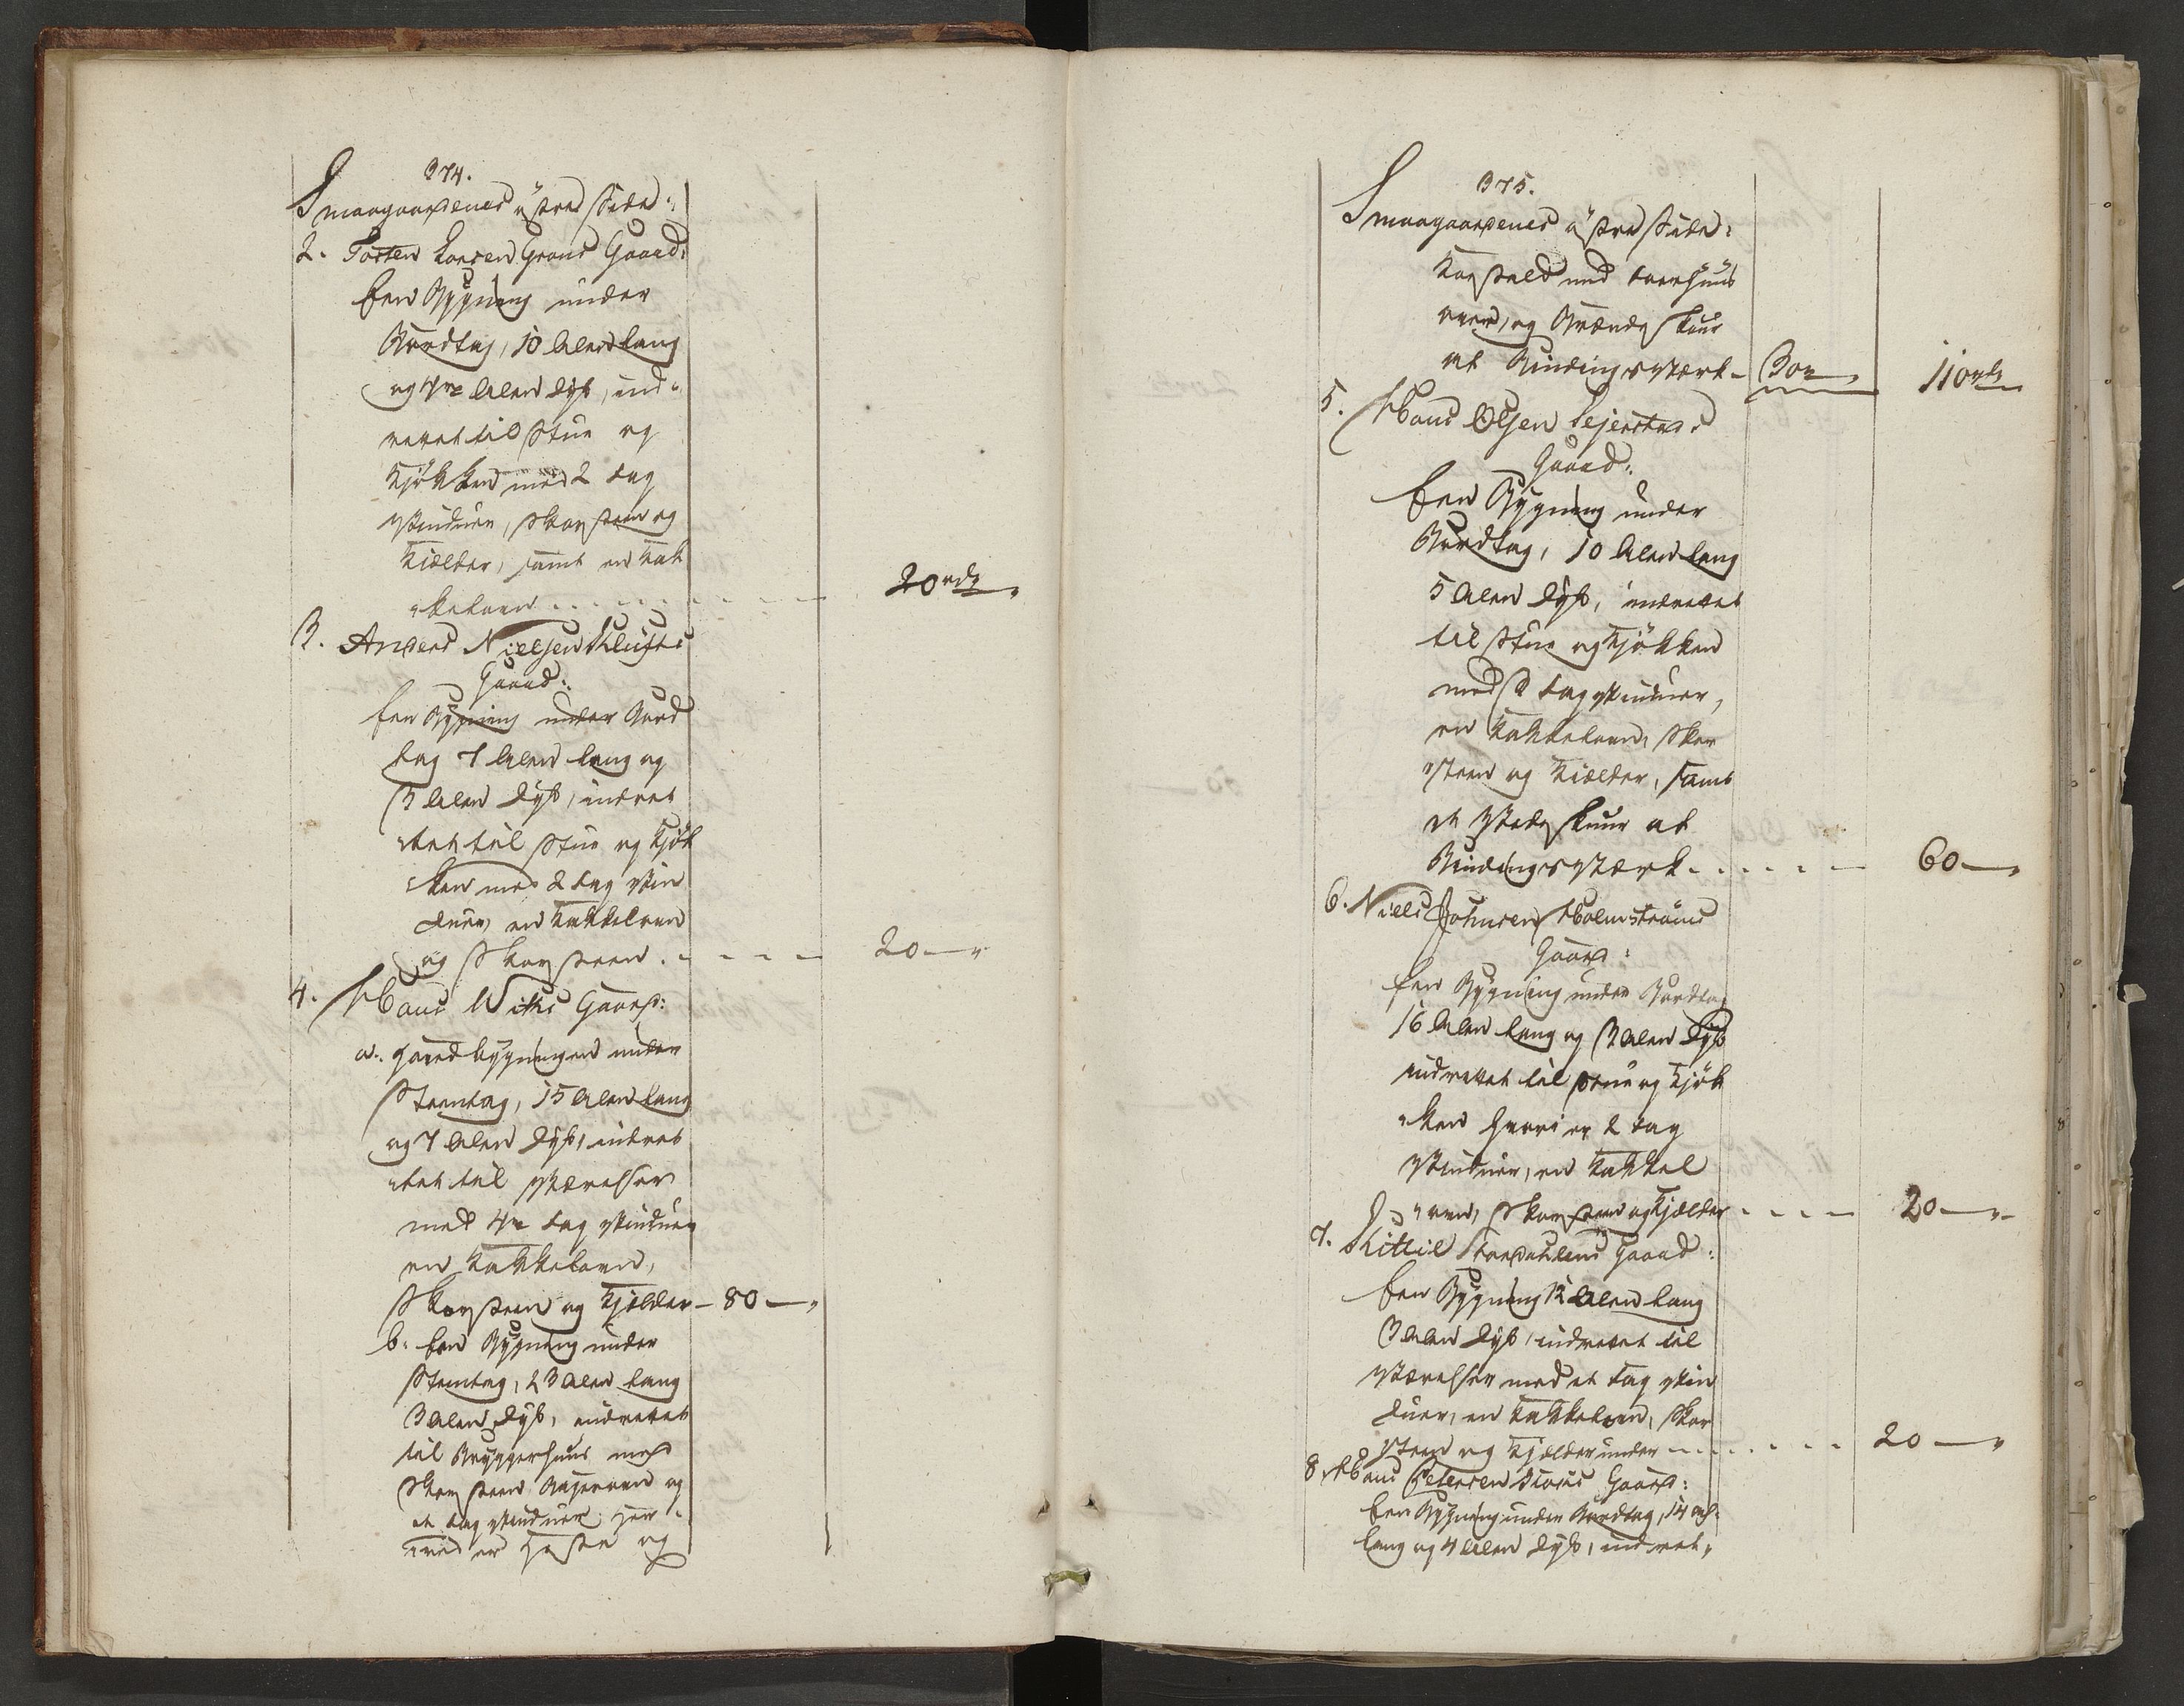 374.
Smaagaardenes östre Side:
2. Torsten Larsen Grans Gaard:
Een Bygning under
Bordtag, 10 Alen lang
og 4re Alen dyb, ind-
rettet til Stue og
Kjökken med 2 fag
Vinduer, Skorsteen og
Kjelder, samt en Kak
kelovn
20 rdr
3. Anders Nielsen Klufts
Gaard:
Een Bygning under Bord
tag 7 Alen lang og
3 Alen dyb, indret
tet til Stue og Kjök
ken med 2 fag Vin
duer, en Kakkelovn
og Skorsteen
20 —
4. Hans Wiks Gaard:
a. Hovedbygningen under
Steentag, 15 Alen lang
og 7 Alen dyb, indret
tet til Værelser
med 4re fag Vinduer
en Kakkelovn,
Skorsteen og Kjelder — 80 —
b. Een Bygning under
Steentag, 23 Alen lang
3 Alen dyb, indrettet
til Bryggerhuus med
Skorsteen Bagerovn og
et fag Vinduer, her
ved er Heste og
375.
Smaagaardenes östre Side:
Koestald med Foerhuus
over, og Brænde Skuur
af Bindingsværk — 30 —
110 rdr
5. Hans Olsen Sejersteds
Gaard:
Een Bygning under
Bordtag, 10 Alen lang
5 Alen dyb, indrettet
til Stue og Kjökken
med 2 fag Vinduer,
en Kakkelovn, Skor
steen og Kjelder, samt
et Vedeskuur af
Bindingsværk
60 —
6. Niels Johnsen Holmströms
Gaard:
Een Bygning under Bordtag
16 Alen lang og 3 Alen dyb
indrettet til Stue og Kjök
ken hvori er 2 fag
Vinduer, en Kakkel
ovn, Skorsteen og Kjelder
20 —
7. Kittil Gaard:
Een Bygning 12 Alen lang
3 Alen dyb, indrettet til
Værelser med et fag Vin
duer, en Kakkelovn, Skor
steen og Kjelder under
20 —
8. Hans Petersen Gaard:
Een Bygning under Bordtag, 14 al:
lang og 4 Alen dyb, indret,